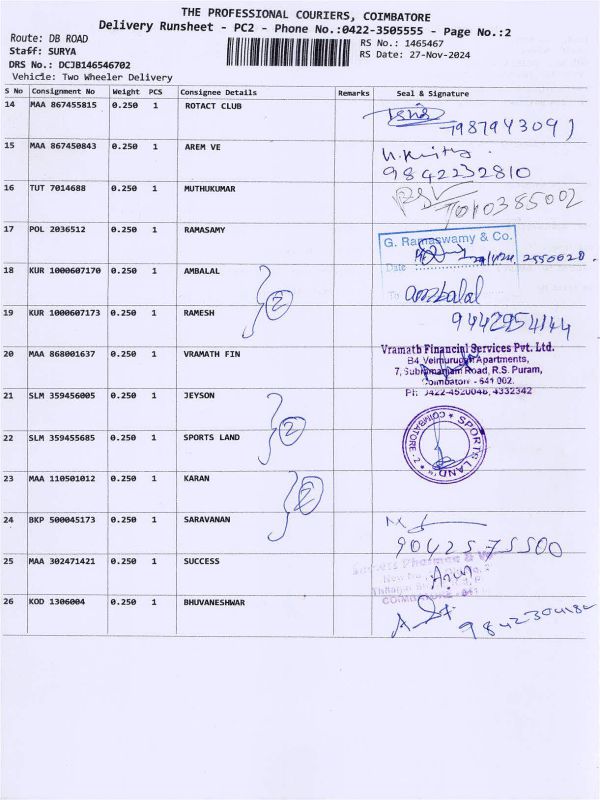 THE PROFESSIONAL COURIERS, COIMBATORE
Delivery Runsheet - PC2 - Phone No.:0422-3505555 - Page No.:2
Route: DB ROAD
Staff: SURYA
DRS No.: DCJB146546702
Vehicle: Two Wheeler Delivery
RS No.: 1465467
RS Date: 27-Nov-2024
S No Consignment No Weight PCS Consignee Details Remarks Seal & Signature
14 MAA 867455815 0.250 1 ROTACT CLUB
7987943091
15 MAA 867450843 0.250 1 AREM VE
9842232810
16 TUT 7014688 0.250 1 MUTHUKUMAR
7010385002
17 POL 2036512 0.250 1 RAMASAMY
G. Ramaswamy & Co.
Date
2550020.
18 KUR 1000607170 0.250 1 AMBALAL
2
To ambalal
19 KUR 1000607173 0.250 1 RAMESH
9442954144
20 MAA 868001637 0.250 1 VRAMATH FIN
Vramath Financial Services Pvt. Ltd.
B4, Velmurugan Apartments,
7, Subramaniam Road, R.S. Puram,
Coimbatore - 641 002.
Ph: 0422-4520046, 4332342
21 SLM 359456005 0.250 1 JEYSON
2
22 SLM 359455685 0.250 1 SPORTS LAND
SPORTS LAND
COIMBATORE - 2
23 MAA 110501012 0.250 1 KARAN
2
24 BKP 500045173 0.250 1 SARAVANAN
9042575500
25 MAA 302471421 0.250 1 SUCCESS
Arun
COIMBATORE
26 KOD 1306004 0.250 1 BHUVANESHWAR